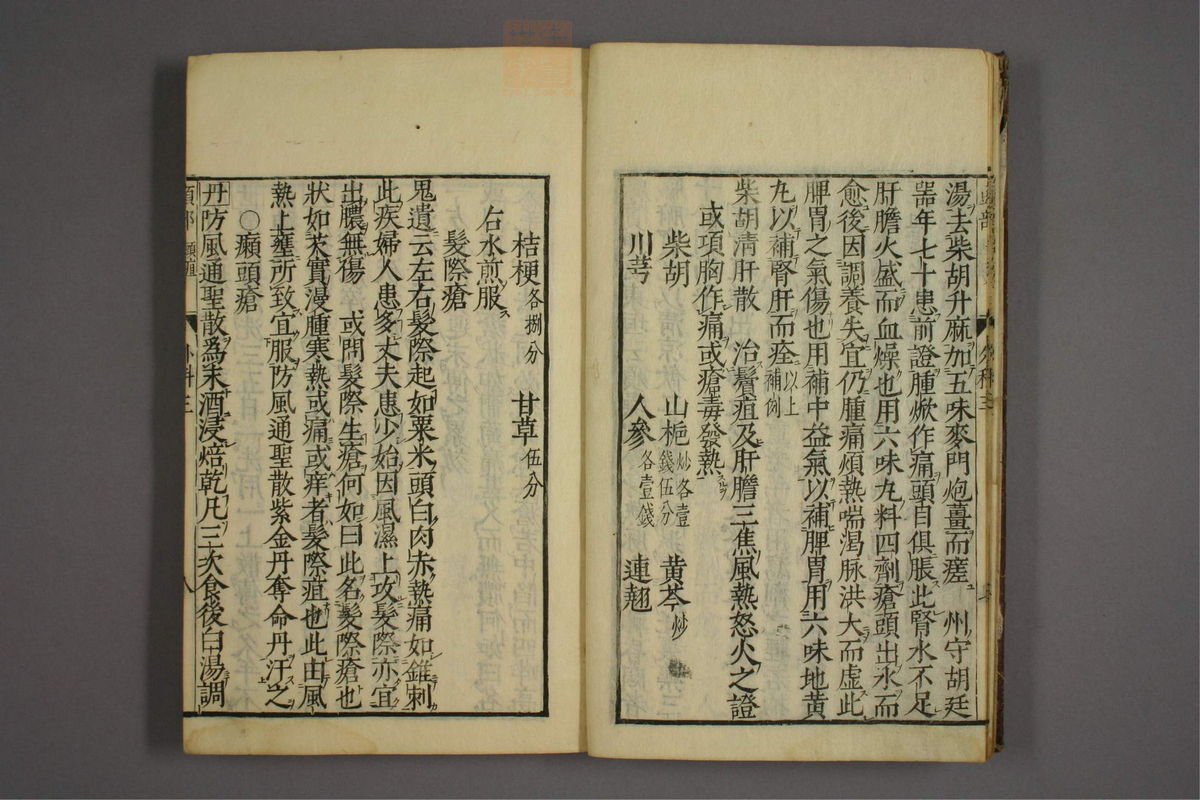 湯去柴胡升麻加五味麥門炮薑而瘥　州守胡廷
器年七十患前證腫焮作痛頭目俱脹此腎水不足
肝膽火盛而血燥也用六味丸料四劑瘡頭出水而
愈後因調養失宜仍腫痛煩熱喘渴脉洪大而虛此
脾胃之氣傷也用補中益氣以補脾胃用六味地黄
丸以補腎肝而痊以上補例
柴胡清肝散　治鬢疽及肝膽三焦風熱怒火之證
或項胸作痛或瘡毒發熱
柴胡　山梔炒各壹錢伍分　黄芩炒
川芎　人參各壹錢　連翹
桔梗各捌分　甘草伍分
右水煎服
髮際瘡
鬼遺云左右髮際起如粟米頭白肉赤熱痛如錐刺
此疾婦人患多丈夫患少始因風濕上攻髮際亦宜
出膿無傷　或問髮際生瘡何如曰此名髮際瘡也
狀如芡實漫腫寒熱或痛或痒者髮際疽也此由風
熱上壅所致宜服防風通聖散紫金丹奪命丹汗之
〇癩頭瘡
丹防風通聖散爲末酒浸焙乾凡三次食後白湯調
外科三
八